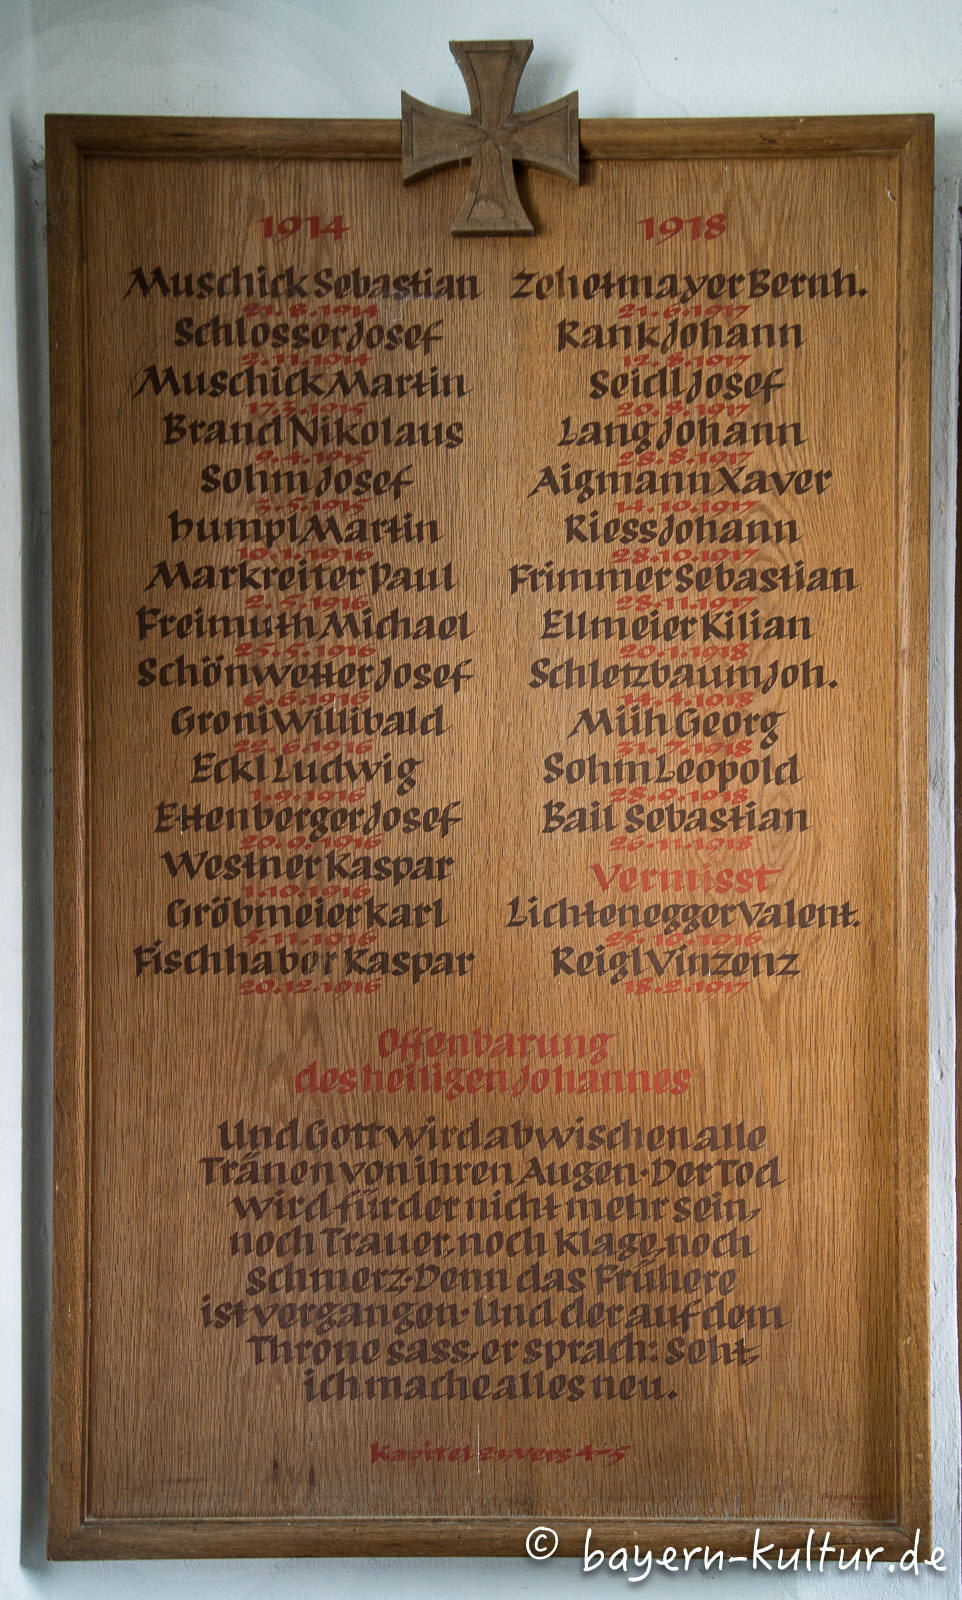 1914
Muschick Sebastian
21.8.1914
Schlosser Josef
2.11.1914
Muschick Martin
17.3.1915
Brand Nikolaus
9.4.1915
Sohm Josef
3.5.1915
humpl Martin
10.1.1916
Markreiter Paul
2.5.1916
Freimuth Michael
25.5.1916
Schönwetter Josef
6.6.1916
Groni Willibald
22.6.1916
Eckl Ludwig
1.9.1916
Ettenberger Josef
20.9.1916
Westner Kaspar
1.10.1916
Gröbmeier Karl
5.11.1916
Fischhaber Kaspar
20.12.1916
1918
Zehetmayer Bernh.
21.6.1917
Rank Johann
12.8.1917
Seidl Josef
20.8.1917
Lang Johann
28.8.1917
Aigmann Xaver
14.10.1917
Riess Johann
28.10.1917
Frimmer Sebastian
28.11.1917
Ellmeier Kilian
20.1.1918
Schletzbaum Joh.
14.4.1918
Müh Georg
31.7.1918
Sohm Leopold
28.9.1918
Bail Sebastian
26.11.1918
Vermisst
Lichtenegger Valent.
25.10.1916
Reigl Vinzenz
18.2.1917
Offenbarung
des heiligen Johannes
Und Gott wird abwischen alle
Tränen von ihren Augen·Der Tod
wird fürder nicht mehr sein,
noch Trauer, noch Klage, noch
Schmerz·Denn das Frühere
ist vergangen·Und der auf dem
Throne sass, er sprach: Seht,
ich mache alles neu.
Kapitel 21, Vers 4-5
© bayern-kultur.de